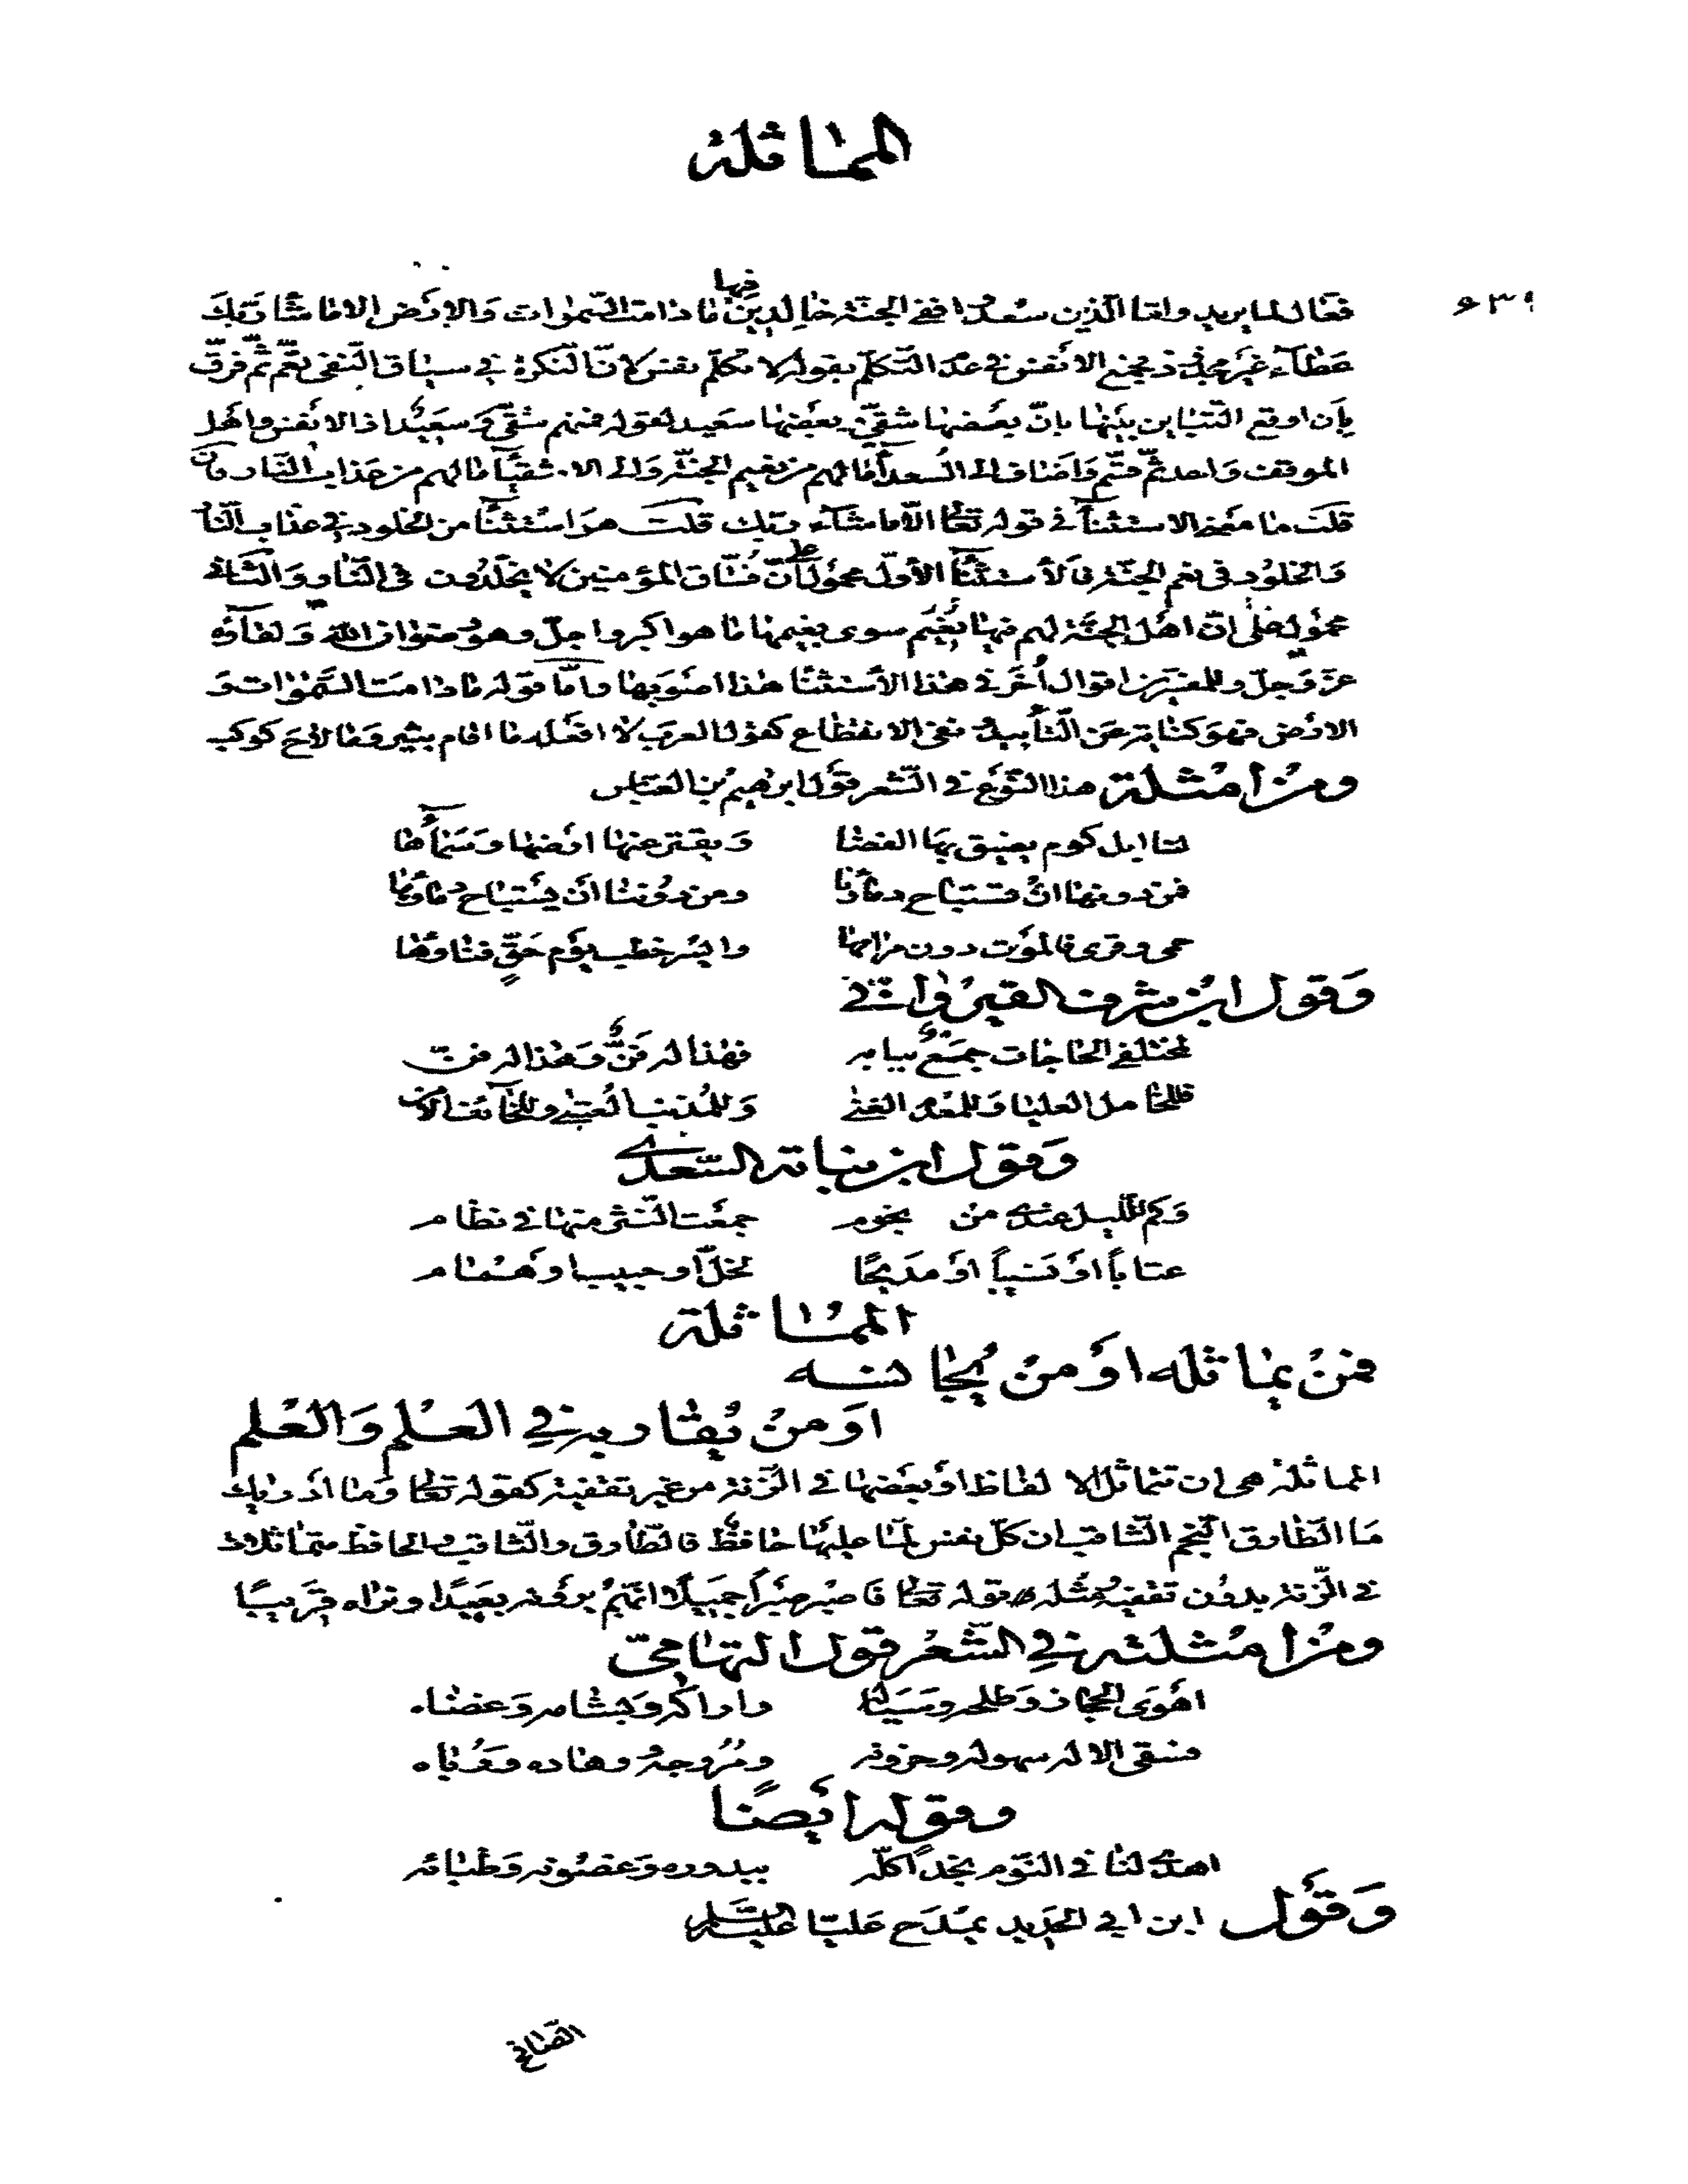 المماثلة
٦٣٩
فعّال لما يريد وامّا الّذين سعدوا ففي الجنّة خالدين فيها ما دامت السّموات والارض الا ما شا ربّك
عطآء غير مجذوذ فجمع الانفس في عدم التّكلّم بقوله لا تكلّم نفس لانّ النّكرة في سياق النّفى تعمّ ثمّ فرّق
بأن اوقع التّباين بينها بانّ بعضها شقيّ وبعضها سعيد لقوله فمنهم شقّي وسعيد اذ الانفس واهل
الموقف واحد ثمّ قسّم واضاف الى السعدآ ما لهم من نعيم الجنّة والى الاشقيآ ما لهم من عذاب النّار فان
قلت ما معنى الاستثنآ في قوله تعالى الّا ما شآء ربّك قلت هو استثنآ من الخلود في عذاب النّار
والخلود في نعيم الجنّة فالاستثنآ الاوّل محمول على انّ فسّاق المؤمنين لا يخلّدون في النّار والثّاني
محمول على انّ اهل الجنّة لهم فيها نعيم سوى نعيمها ما هو اكبر واجلّ وهو رضوان اللّه ولقآؤه
عزّ وجلّ وللمفسّرين اقوال اُخر في هذا الأستثنا هذا اصوبها وامّا قوله ما دامت السّموات و
الارض فهو كناية عن التّأبيد ونفى الانقطاع كقول العرب لا افعله ما اقام ثبير وما لاح كوكب
ومن امثلة هذا النّوع في الشّعر قول ابرهيم بن العبّاس
لنا ابل كوم يضيق بها الفضا ويفترّ عنها ارضها وسمآؤها
فمن دونها ان تستباح دمآؤنا ومن دوننا ان يستباح دمآؤها
حمى وقرى فالموت دون مرامها وايسر خطب يوم حقّ فناؤها
وقول ابن شرف القيروانّي
لمختلفي الحاجات جمع ببابه فهذا له فنّ وهذا له فنّ
فللخامل العليا وللمعدم الغنى وللمذنب العتبى وللخآئف الأمن
وقول ابن نباتة السّعدي
وكم للّيل عندي من نجوم جمعت النّثر منها في نظام
عتاباً او نسيباً او مديحاً لخلّ او حبيب او همام
المماثلة
فمن يماثله او من يجانسه
او من يقاربه في العلم والعلم
المماثلة هى ان تتماثل الالفاظ او بعضها في الزّنة من غير تقفية كقوله تعالى وما ادراك
ما الطّارق النّجم الثّاقب ان كلّ نفس لمّا عليها حافظ فالطّارق والثّاقب والحافظ متماثلات
في الزّنة بدون تقفية ومثله قوله تعالى فاصبر صبراً جميلا انّهم يرونه بعيدًا ونراه قريبًا
ومن امثلته في الشّعر قول التهامىّ
اهوى الحجاز وطلحه وسياله واراكه وبشامه وعضاه
وسقى الاله سهوله وحزونه ومروجه ووهاده ورباه
وقوله أيضًا
اهدى لنا في النّوم نجداً كلّه ببدوره وغصونه وظبائه
وقول ابن ابي الحديد يمدح عليّا عليه السّلم